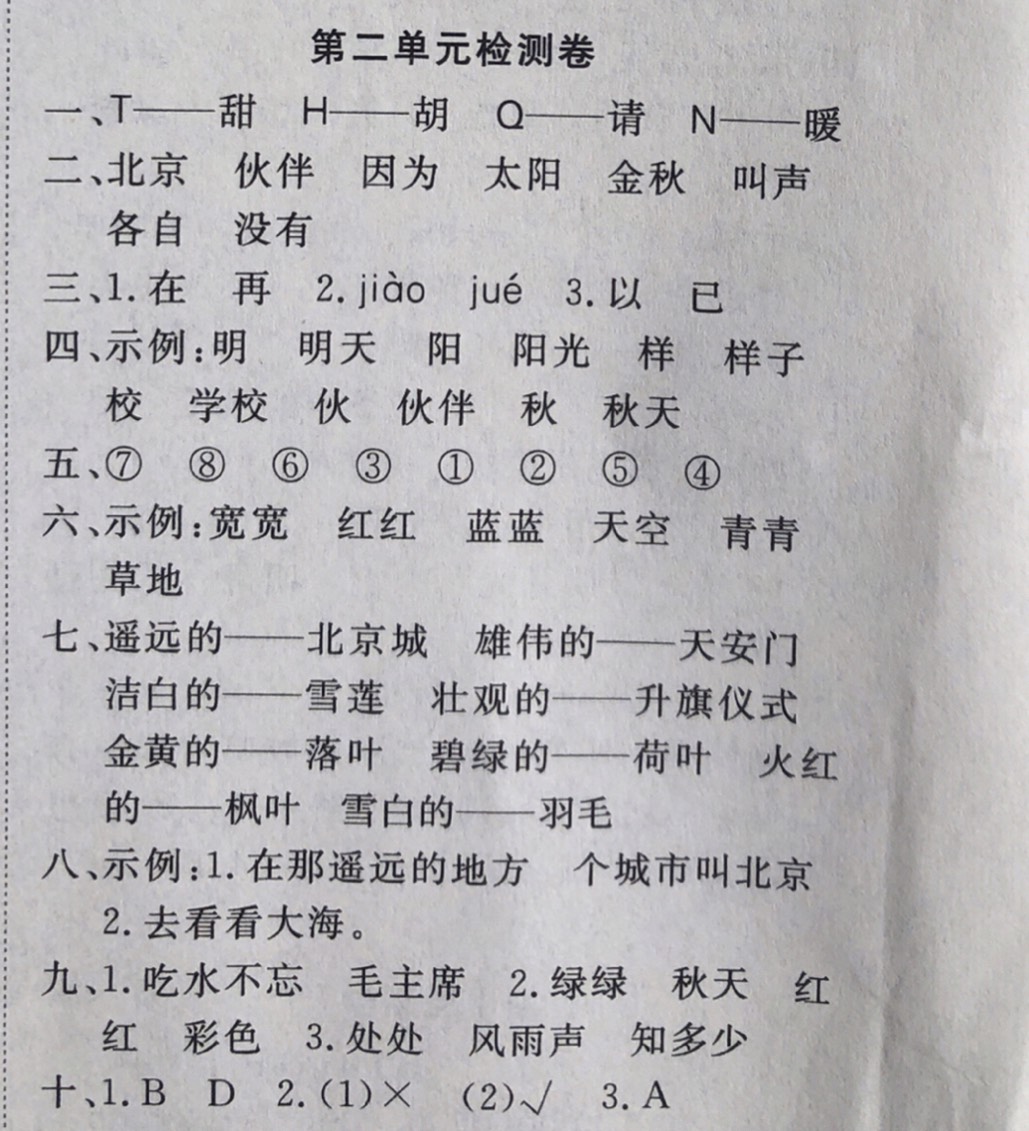 第二单元检测卷
一、T——甜 H——胡 Q——请 N——暖
二、北京 伙伴 因为 太阳 金秋 叫声
各自 没有
三、1.在 再 2.jiào jué 3.以 已
四、示例:明 明天 阳 阳光 样 样子
校 学校 伙 伙伴 秋 秋天
五、⑦ ⑧ ⑥ ③ ① ② ⑤ ④
六、示例:宽宽 红红 蓝蓝 天空 青青
草地
七、遥远的——北京城 雄伟的——天安门
洁白的——雪莲 壮观的——升旗仪式
金黄的——落叶 碧绿的——荷叶 火红
的——枫叶 雪白的——羽毛
八、示例:1.在那遥远的地方 个城市叫北京
2.去看看大海。
九、1.吃水不忘 毛主席 2.绿绿 秋天 红
红 彩色 3.处处 风雨声 知多少
十、1.B D 2.(1)× (2)√ 3.A